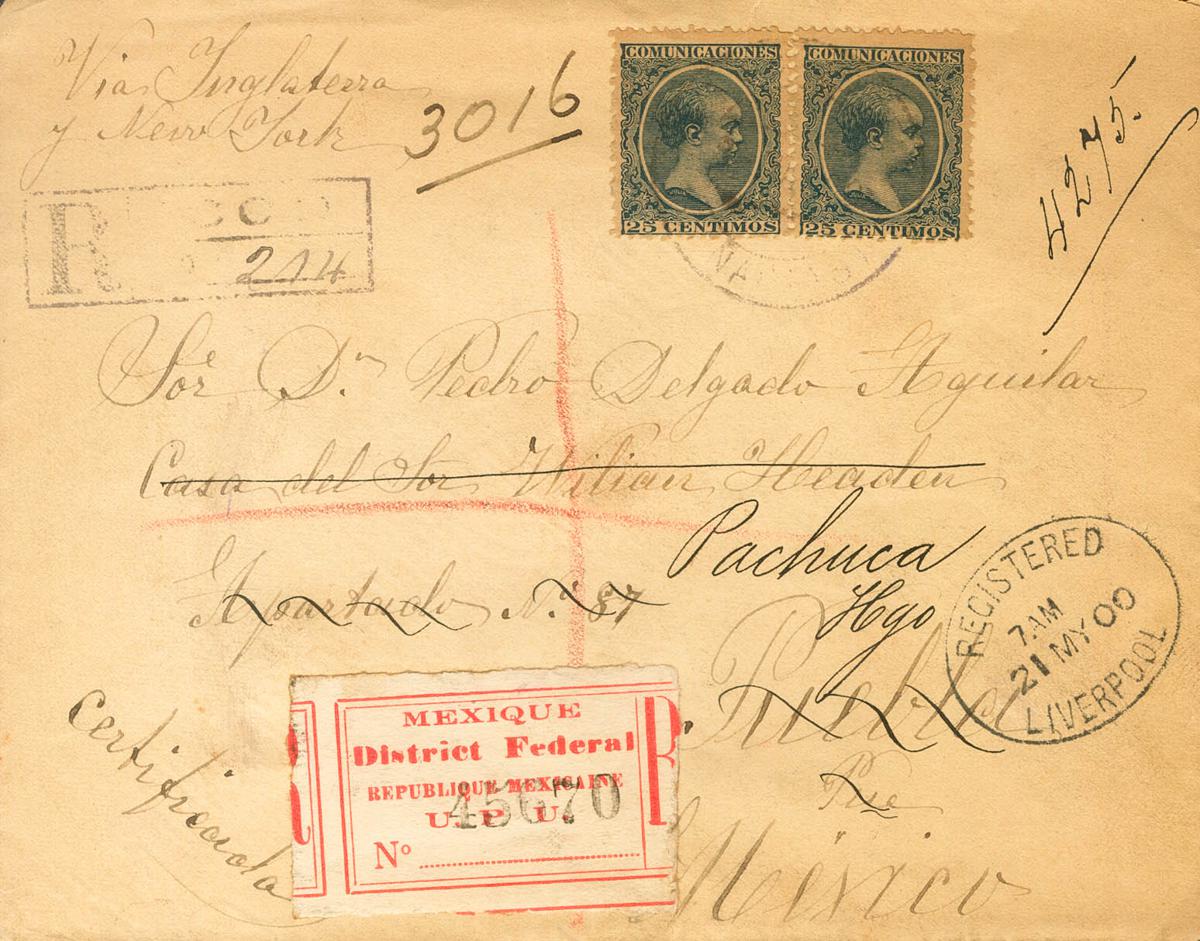 Via Inglaterra
y New York
3016
COMUNICACIONES
25 CENTIMOS
COMUNICACIONES
25 CENTIMOS
4275.
R
214
Sor Dn Pedro Delgado Aguilar
Casa del Sor Wilian Headen
Apartado No. 87
Pachuca
Hgo
Puebla
Pue
Mexico
REGISTERED
7.AM
21 MY 00
LIVERPOOL
Certificada
R
MEXIQUE
District Federal
REPUBLIQUE MEXICAINE
U.P.U.
45670
No
R